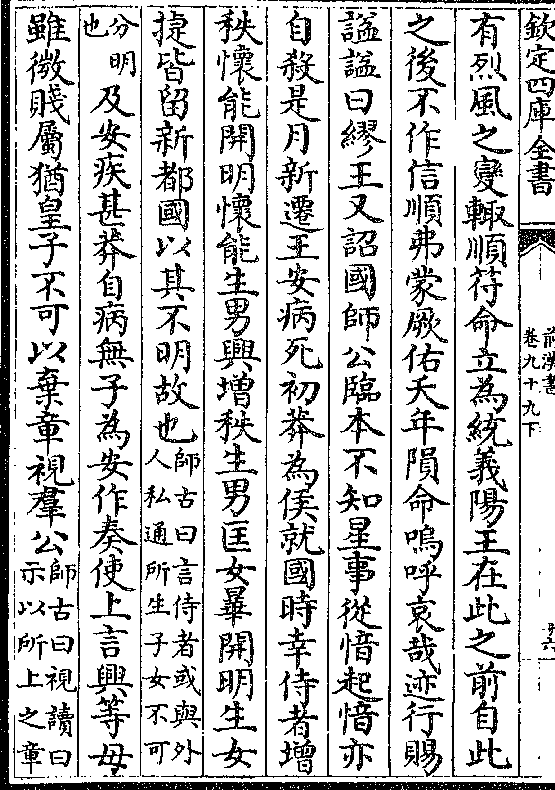 欽定四庫全書
前漢書
卷九十九下
有烈風之變輙順符命立為統義陽王在此之前自此
之後不作信順弗蒙厥佑夭年隕命嗚呼哀哉迹行賜
諡諡曰繆王又詔國師公臨本不知星事從愔起愔亦
自殺是月新遷王安病死初莽為侯就國時幸侍者增
秩懷能開明懷能生男興增秩生男匡女㬱開明生女
捷皆留新都國以其不明故也師古曰言侍者或與外
人私通所生子女不可
分明
也
及安疾甚莽自病無子為安作奏使上言興等母
雖微賤屬猶皇子不可以棄章視羣公師古曰視讀曰
示以所上之章